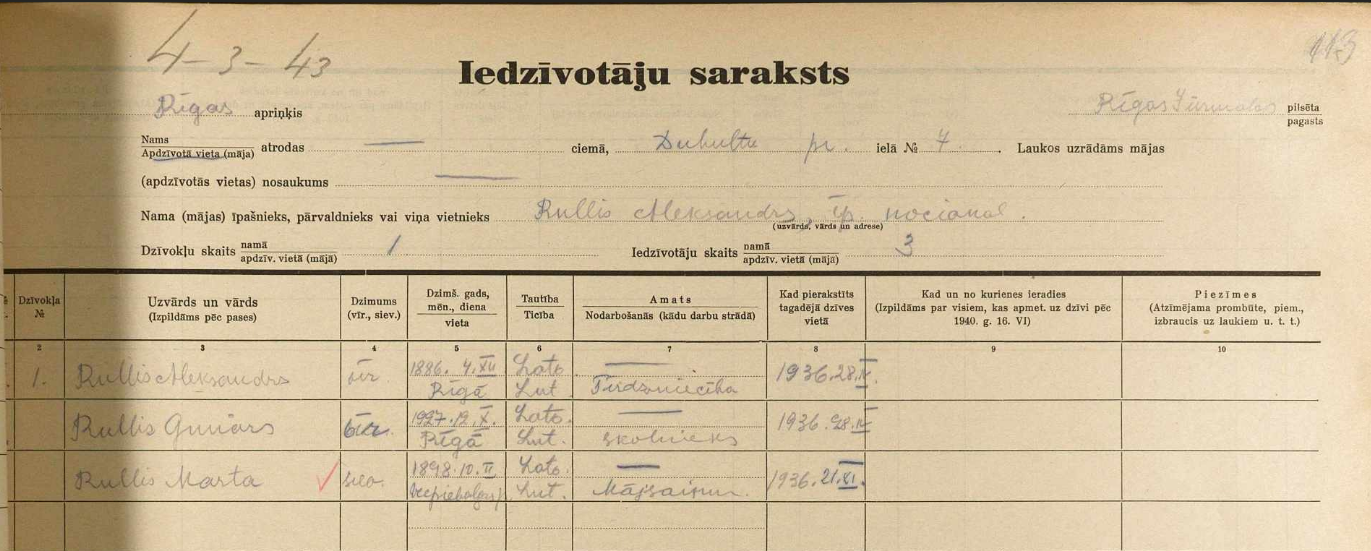 4-3-43
113
Iedzīvotāju saraksts
Rīgas apriņķis
Rīgas Jūrmalas pilsēta
pagasts
Nams
Apdzīvotā vieta (māja) atrodas — ciemā, Dubultu pr. ielā № 7. Laukos uzrādāms mājas
(apdzīvotās vietas) nosaukums —
Nama (mājas) īpašnieks, pārvaldnieks vai viņa vietnieks Rullis Aleksandrs, īp. nocional.
(uzvārds, vārds un adrese)
Dzīvokļu skaits namā 1 Iedzīvotāju skaits namā 3
apdzīv. vietā (mājā) apdzīv. vietā (mājā)
Dzīvokļa № Uzvārds un vārds (Izpildāms pēc pases) Dzimums (vīr., siev.) Dzimš. gads, mēn., diena vieta Tautība Ticība Amats Nodarbošanās (kādu darbu strādā) Kad pierakstīts tagadējā dzīves vietā Kad un no kurienes ieradies (Izpildāms par visiem, kas apmet. uz dzīvi pēc 1940. g. 16. VI) Piezīmes (Atzīmējama prombūte, piem., izbraucis uz laukiem u. t. t.)
2 3 4 5 6 7 8 9 10
1. Rullis Aleksandrs vīr 1886. 4. XII Latv. — 1936. 28. IV.
Rīgā Lut. Tirdzniecība
Rullis Gunārs vīr. 1927. 12. X. Latv. — 1936. 28. IV
Rīgā Lut. skolnieks
Rullis Marta siev. 1898. 10. II Latv. — 1936. 21. XI.
Vecpiebalgā Lut.